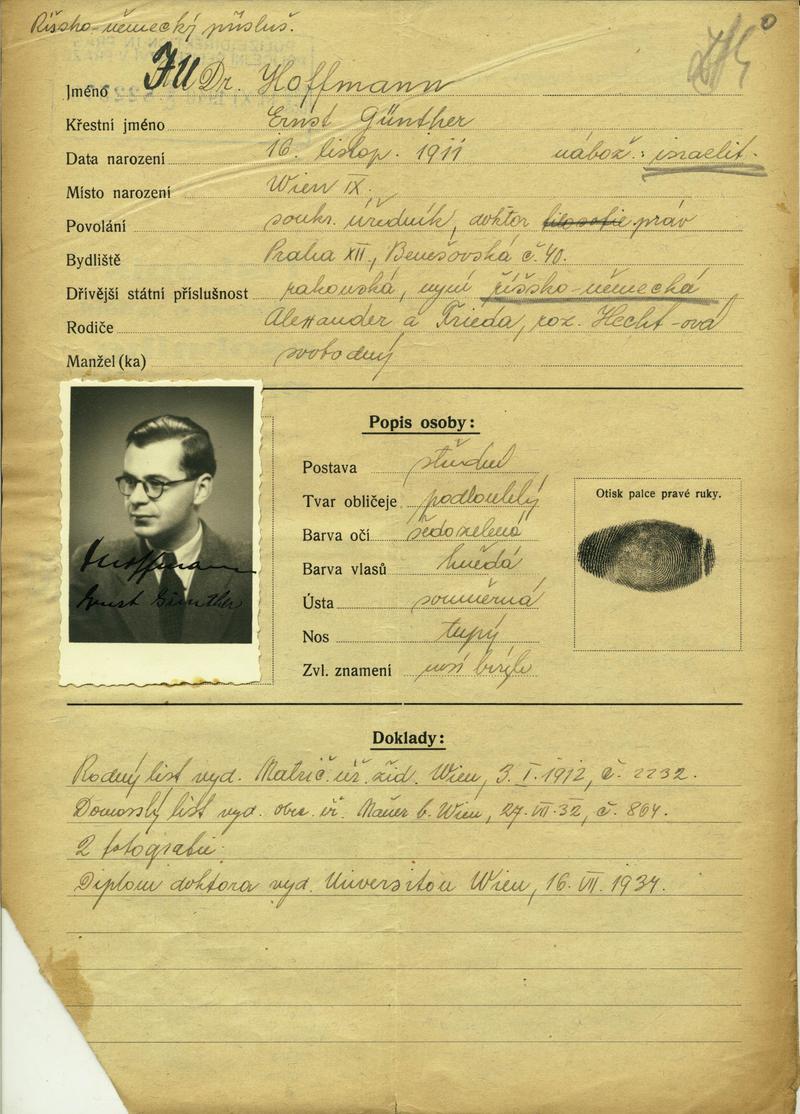 Říšsko-německý přísluš.
0
Jméno JU Dr. Hoffmann
Křestní jméno Ernst Günther
Data narození 16. listop. 1911 nábož.: israelit.
Místo narození Wien IX.
Povolání soukr. úředník, doktor filosofie práv
Bydliště Praha XII., Benešovská č. 40.
Dřívější státní příslušnost rakouská, nyní říšsko-německá
Rodiče Alexander a Frieda, roz. Hecht-ová
Manžel (ka) svobodný
Popis osoby:
Postava střední
Tvar obličeje podlouhlý
Barva očí šedozelená
Barva vlasů hnědá
Ústa souměrná
Nos tupý
Zvl. znamení nosí brýle
Otisk palce pravé ruky.
Hoffmann
Ernst Günther
Doklady:
Rodný list vyd. Matrič. úř. žid. Wien, 3. I. 1912, č. 2232.
Domovský list vyd. obec. úř. Mauer b. Wien, 27. VII. 32, č. 864.
2 fotografie
Diplom doktora vyd. Universitou Wien, 16. VII. 1934.